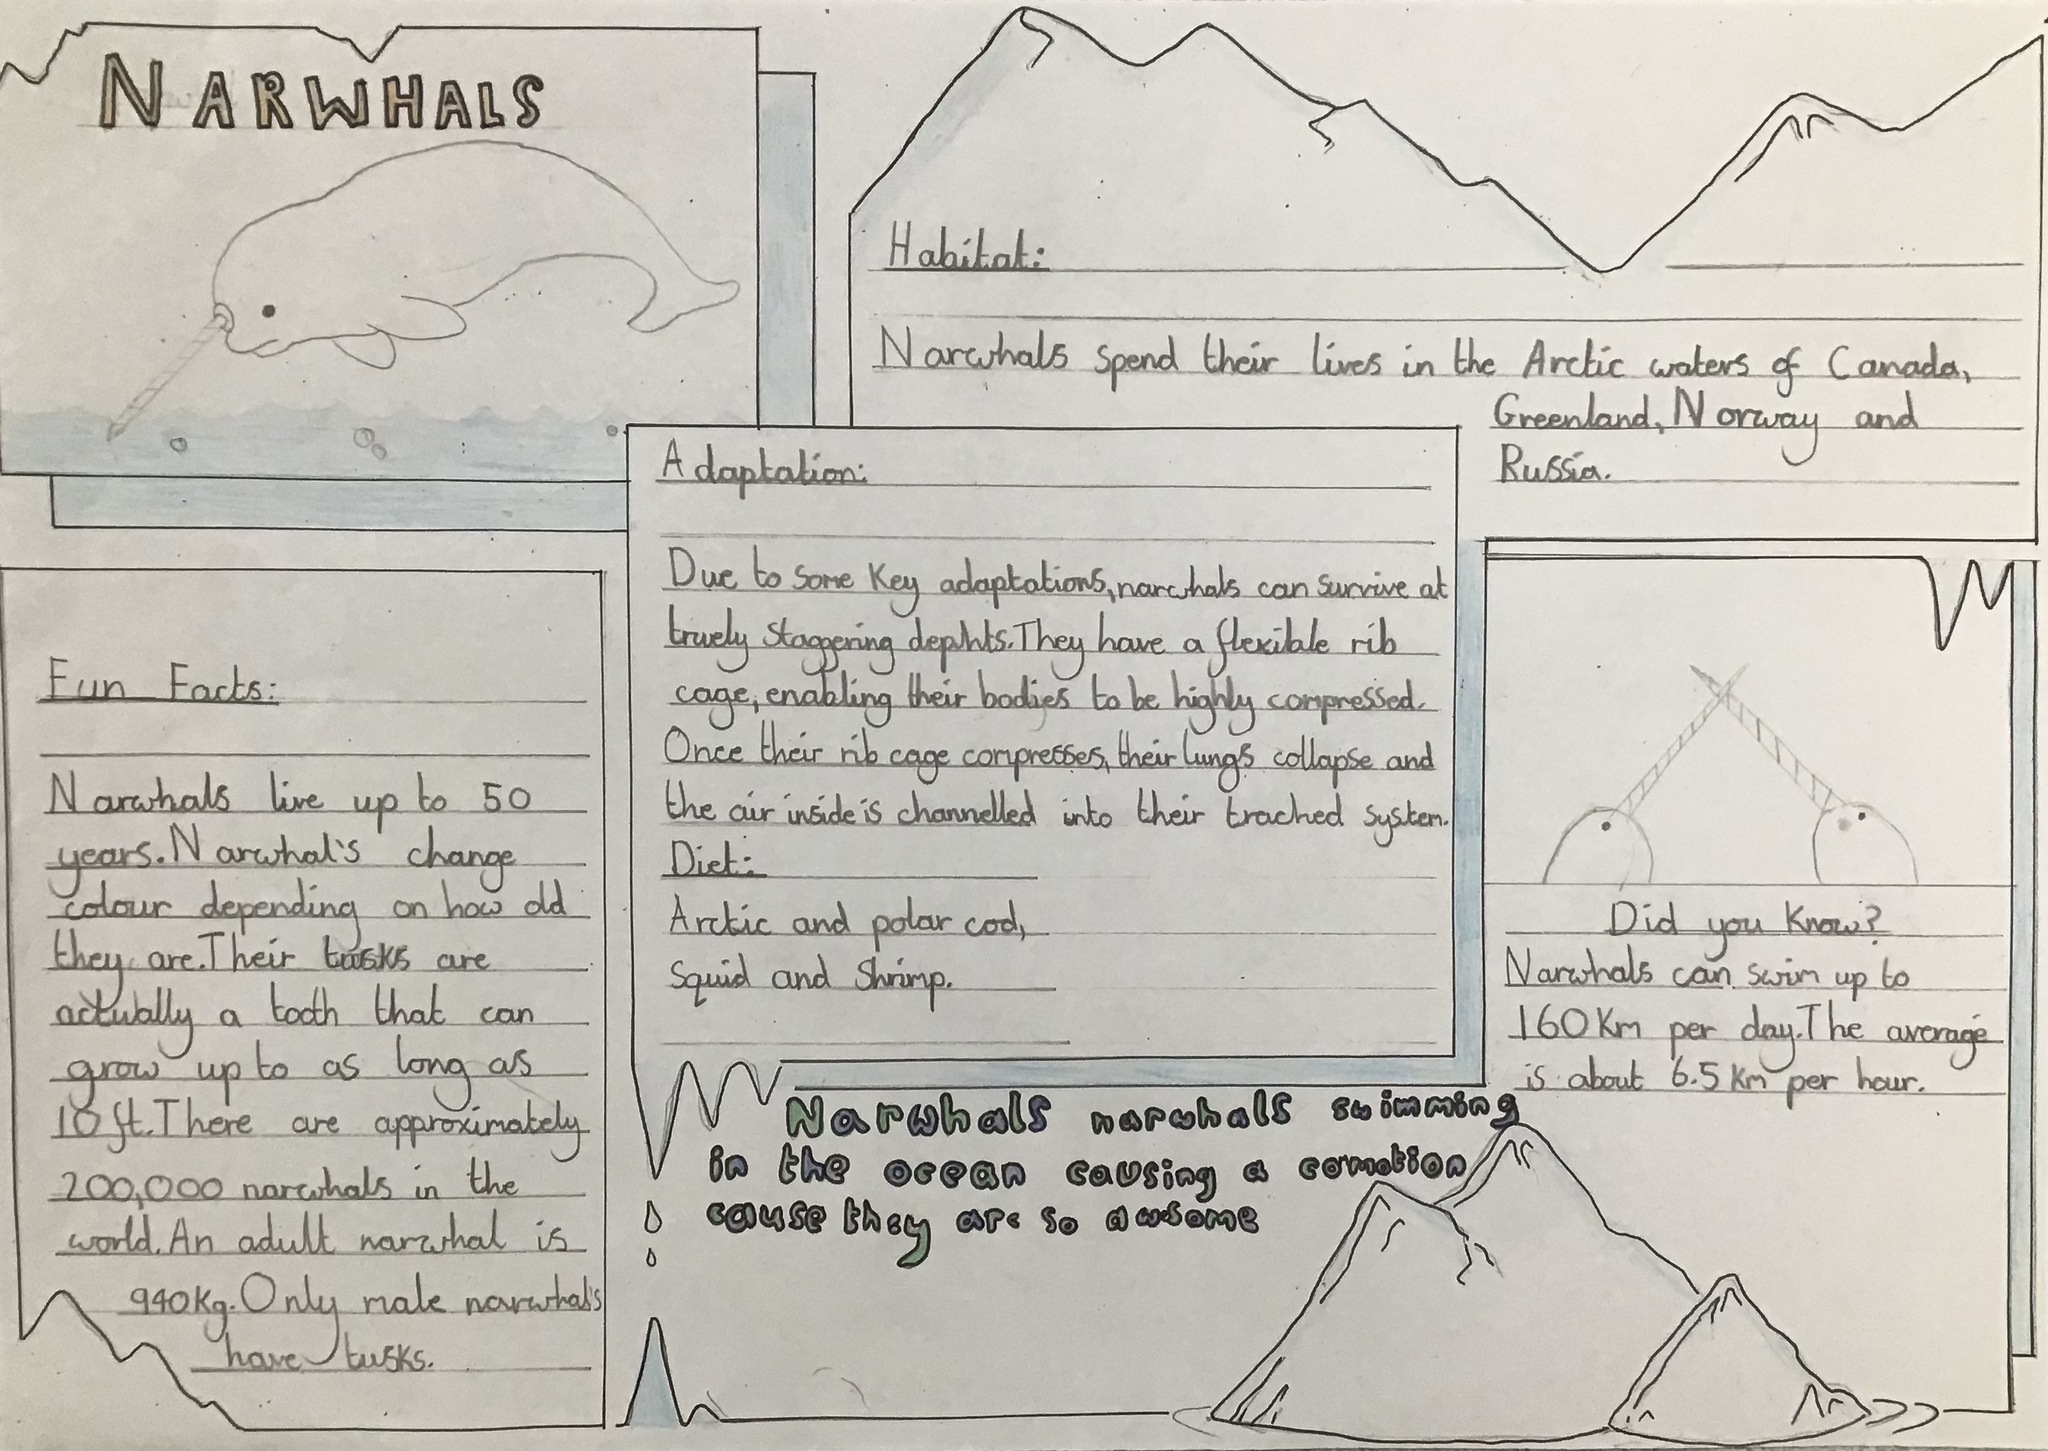 NARWHALS
Habitat:
Narwhals spend their lives in the Arctic waters of Canada,
Greenland, Norway and
Russia.
Adaptation:
Due to some key adaptations, narwhals can survive at
truely staggering dephts. They have a flexible rib
cage, enabling their bodies to be highly compressed.
Once their rib cage compresses, their lungs collapse and
the air inside is channelled into their trached system.
Diet:
Arctic and polar cod,
squid and shrimp.
Fun Facts:
Narwhals live up to 50
years. Narwhal's change
colour depending on how old
they are. Their tusks are
actually a tooth that can
grow up to as long as
10 ft. There are approximately
200,000 narwhals in the
world. An adult narwhal is
940kg. Only male narwhal's
have tusks.
Did you know?
Narwhals can swim up to
160 km per day. The average
is about 6.5 km per hour.
Narwhals narwhals swimming
in the ocean causing a comotion
cause they are so awsome